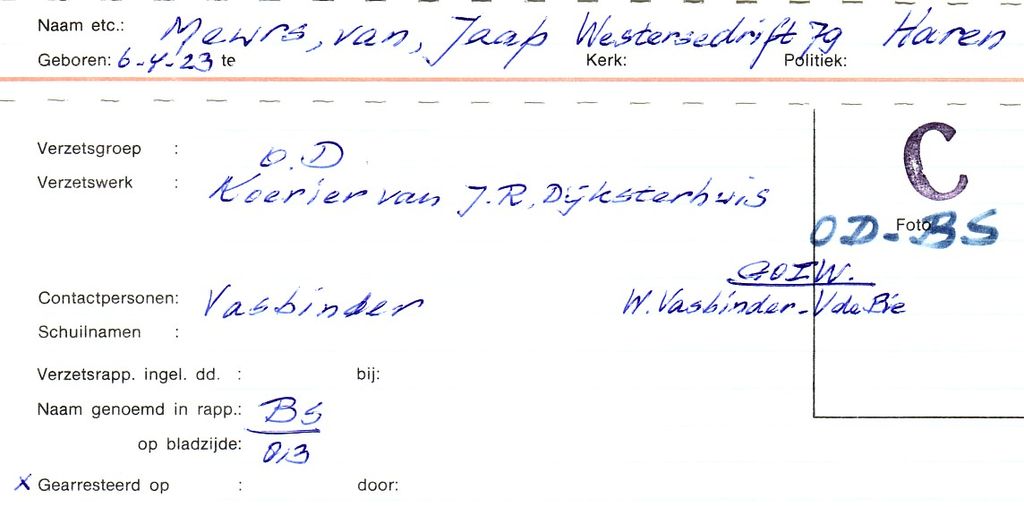 Naam etc.: Mewrs, van, Jaap Westersedrift 79 Haren
Geboren: 6-4-23 te Kerk: Politiek:
C
Verzetsgroep : O.D.
Verzetswerk : Koerier van J.R. Dijksterhuis
Foto
OD-BS
GOIW.
Contactpersonen: Vasbinder W. Vasbinder-VdeBie
Schuilnamen :
Verzetsrapp. ingel. dd. : bij:
Naam genoemd in rapp.: BS
op bladzijde: 013
x Gearresteerd op : door: